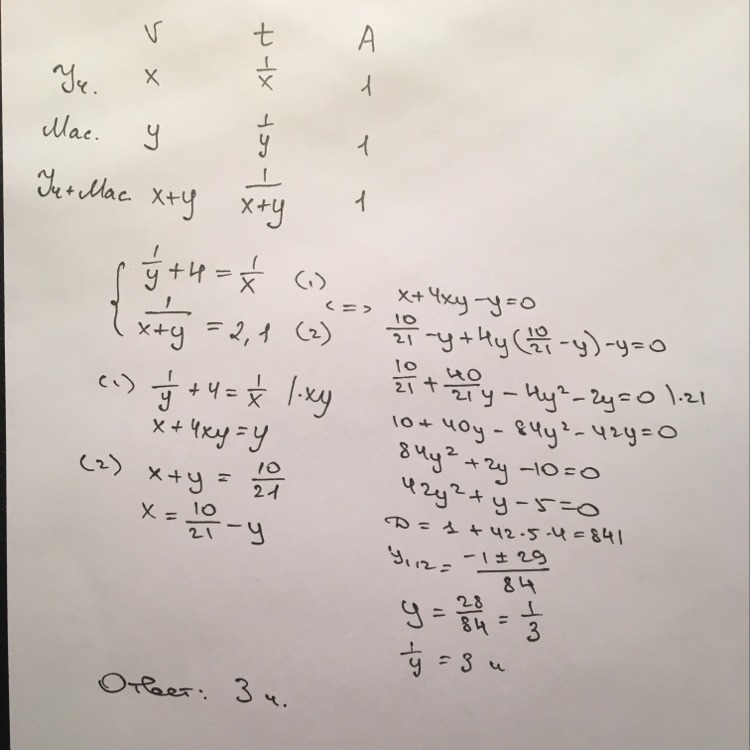 v t A
Уч. x 1/x 1
Мас. y 1/y 1
Уч+Мас. x+y 1/(x+y) 1
{ 1/y + 4 = 1/x (1)
1/(x+y) = 2,1 (2) <=>
(1) 1/y + 4 = 1/x |·xy
x + 4xy = y
(2) x + y = 10/21
x = 10/21 - y
x + 4xy - y = 0
10/21 - y + 4y(10/21 - y) - y = 0
10/21 + 40/21 y - 4y² - 2y = 0 |·21
10 + 40y - 84y² - 42y = 0
84y² + 2y - 10 = 0
42y² + y - 5 = 0
D = 1 + 42·5·4 = 841
y₁,₂ = (-1 ± 29)/84
y = 28/84 = 1/3
1/y = 3 ч
Ответ: 3 ч.